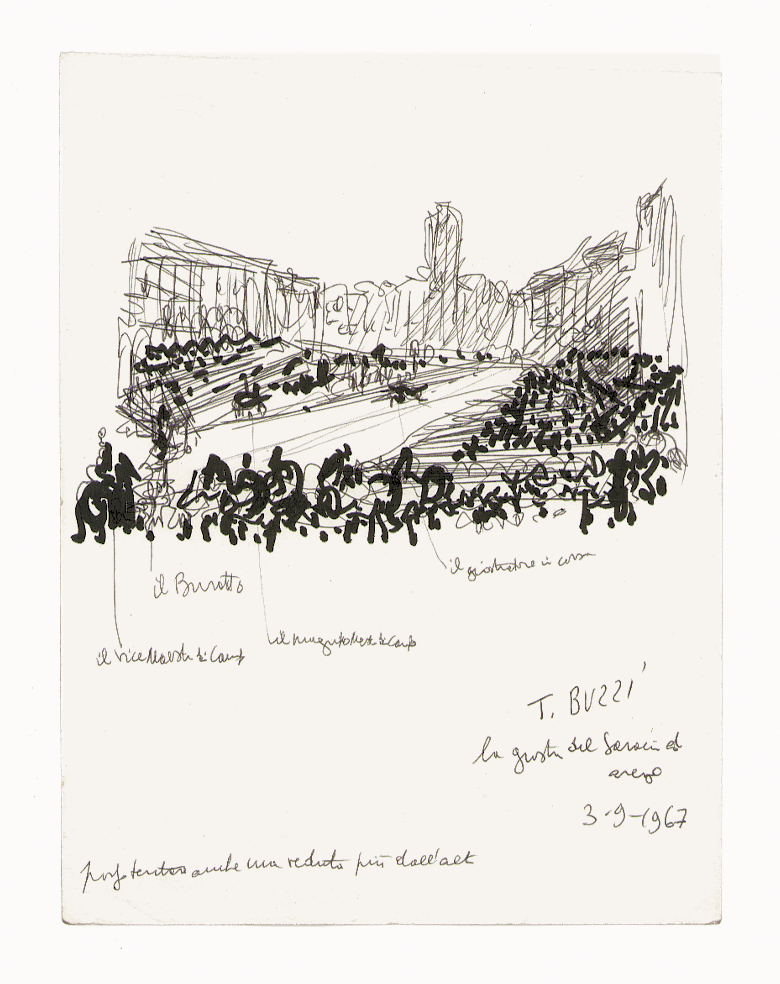 il giostratore in corsa
il Buratto
il vice Maestro di Campo
il Maestro di Campo
T. BUZZI
la giostra del Saracino d
arezzo
3-9-1967
anche una veduta più dall'alt